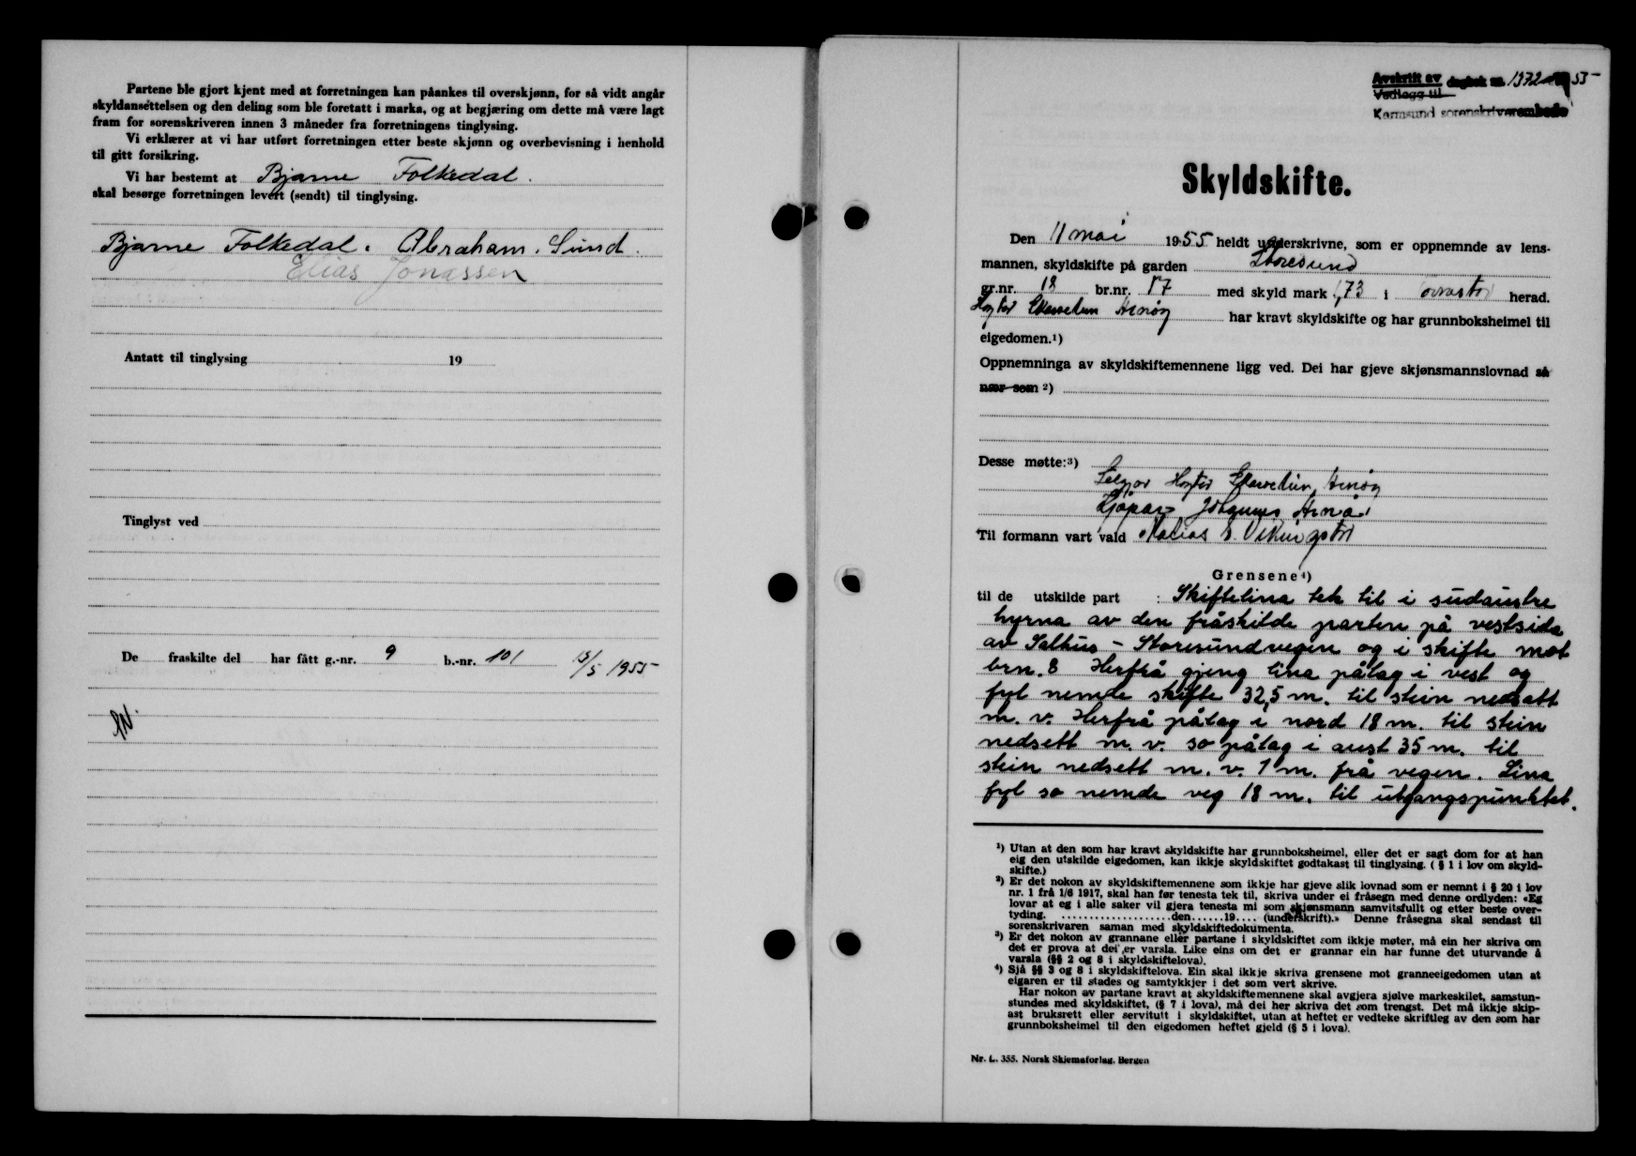 Partene ble gjort kjent med at forretningen kan påankes til overskjønn, for så vidt angår
skyldansettelsen og den deling som ble foretatt i marka, og at begjæring om dette må være lagt
fram for sorenskriveren innen 3 måneder fra forretningens tinglysing.
Vi erklærer at vi har utført forretningen etter beste skjønn og overbevisning i henhold
til gitt forsikring.
Vi har bestemt at Bjarne Folkedal.
skal besørge forretningen levert (sendt) til tinglysing.
Bjarne Folkedal. Abraham. Sund.
Elias Jonassen
Antatt til tinglysing 19
Tinglyst ved
De fraskilte del har fått g.-nr. 9 b.-nr. 101 13/5 1955
Avskrift av dagbok nr. 1372 1955
Vedlegg til
Karmsund sorenskriverembede
Skyldskifte.
Den 11 mai 1955 heldt underskrivne, som er oppnemnde av lens-
mannen, skyldskifte på garden Storesund
gr.nr. 18 br.nr. 17 med skyld mark 1,73 i Torvastad herad.
har kravt skyldskifte og har grunnboksheimel til
eigedomen.¹)
Oppnemninga av skyldskiftemennene ligg ved. Dei har gjeve skjønsmannslovnad så
nær som ²)
Desse møtte:³)
Seljar
Kjøpar
Til formann vart vald
Grensene⁴)
til de utskilde part : Skiftelina tek til i sudaustre
hyrna av den fråskilde parten på vestsida
av Salhus - Storesundvegen og i skifte mot
brn. 8 Herfrå gjeng lina pålag i vest og
fyl nemde skifte 32,5 m. til stein nedsatt
m. v. Herfrå pålag i nord 18 m. til stein
nedsett m. v. so pålag i aust 35 m. til
stein nedsett m. v. 1 m. frå vegen. Lina
fyl so nemde veg 18 m. til utgangspunktet.
¹) Utan at den som har kravt skyldskifte har grunnboksheimel, eller det er sagt dom for at han
eig den utskilde eigedomen, kan ikkje skyldskiftet godtakast til tinglysing. (§ 1 i lov om skyld-
skifte.)
²) Er det nokon av skyldskiftemennene som ikkje har gjeve slik lovnad som er nemnt i § 20 i lov
nr. 1 frå 1/6 1917, skal han før tenesta tek til, skriva under ei fråsegn med denne ordlyden: «Eg
lovar at eg i alle saker vil gjera tenesta mi som skjønsmann samvitsfullt og etter beste over-
tyding. ....................den......19.... (underskrift).» Denne fråsegna skal sendast til
sorenskrivaren saman med skyldskiftedokumenta.
³) Er det nokon av grannane eller partane i skyldskiftet som ikkje møter, må ein her skriva om
det er prova at dei er varsla. Like eins om det er grannar ein har funne det uturvande å
varsla (§§ 2 og 8 i skyldskiftelova).
⁴) Sjå §§ 3 og 8 i skyldskiftelova. Ein skal ikkje skriva grensene mot granneeigedomen utan at
eigaren er til stades og samtykkjer i det som vert skrive.
Har nokon av partane kravt at skyldskiftemennene skal avgjera sjølve markeskilet, samstun-
stundes med skyldskiftet, (§ 7 i lova), må dei her skriva det som trengst. Det må ikkje skip-
ast bruksrett eller servitutt i skyldskiftet, utan at heftet er vedteke skriftleg av den som har
grunnboksheimel til den eigedomen heftet gjeld (§ 5 i lova).
Nr. L. 355. Norsk Skjemaforlag. Bergen